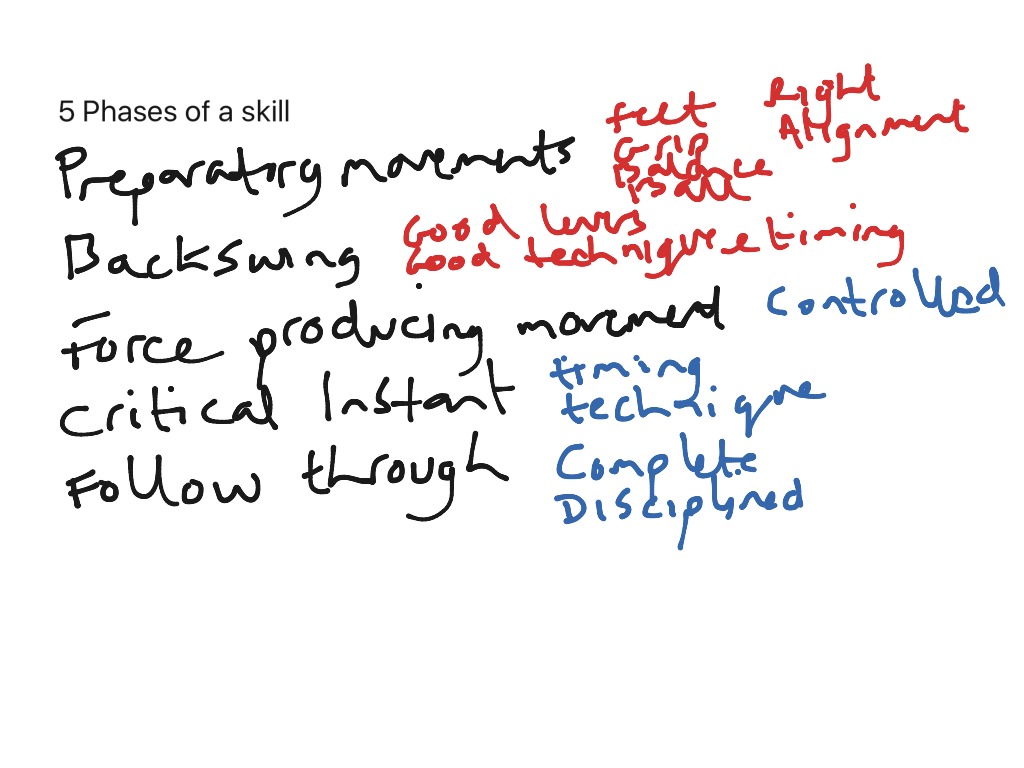 5 Phases of a skill
Preparatory movements
Feet
Grip
Balance
Right
Alignment
Backswing
Good levers
Good technique e timing
Force producing movement
Controlled
Critical Instant
timing
technique
Follow through
Complete
Disciplined